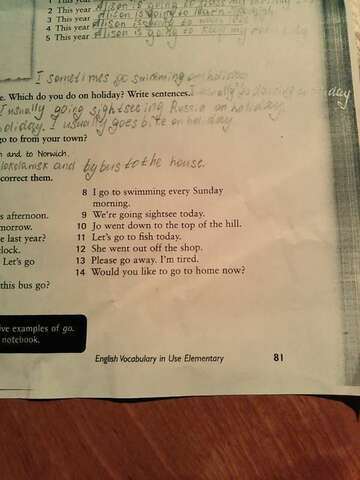 2 This year Alison is going to
3 This year Alison is going to learn
4 This year Alison is going to
5 This year Alison is going to keep my
I sometimes go swimming on holiday
e. Which do you do on holiday? Write sentences.
I usually going sightseeing Russia on holiday.
holiday. I usually goes bike on holiday
go to from your town?
n and to Norwich.
lokolamsk and by bus to the house.
correct them.
8 I go to swimming every Sunday
morning.
s afternoon. 9 We're going sightsee today.
morrow. 10 Jo went down to the top of the hill.
e last year? 11 Let's go to fish today.
lock. 12 She went out off the shop.
Let's go 13 Please go away. I'm tired.
14 Would you like to go to home now?
this bus go?
ive examples of go.
notebook.
English Vocabulary in Use Elementary 81